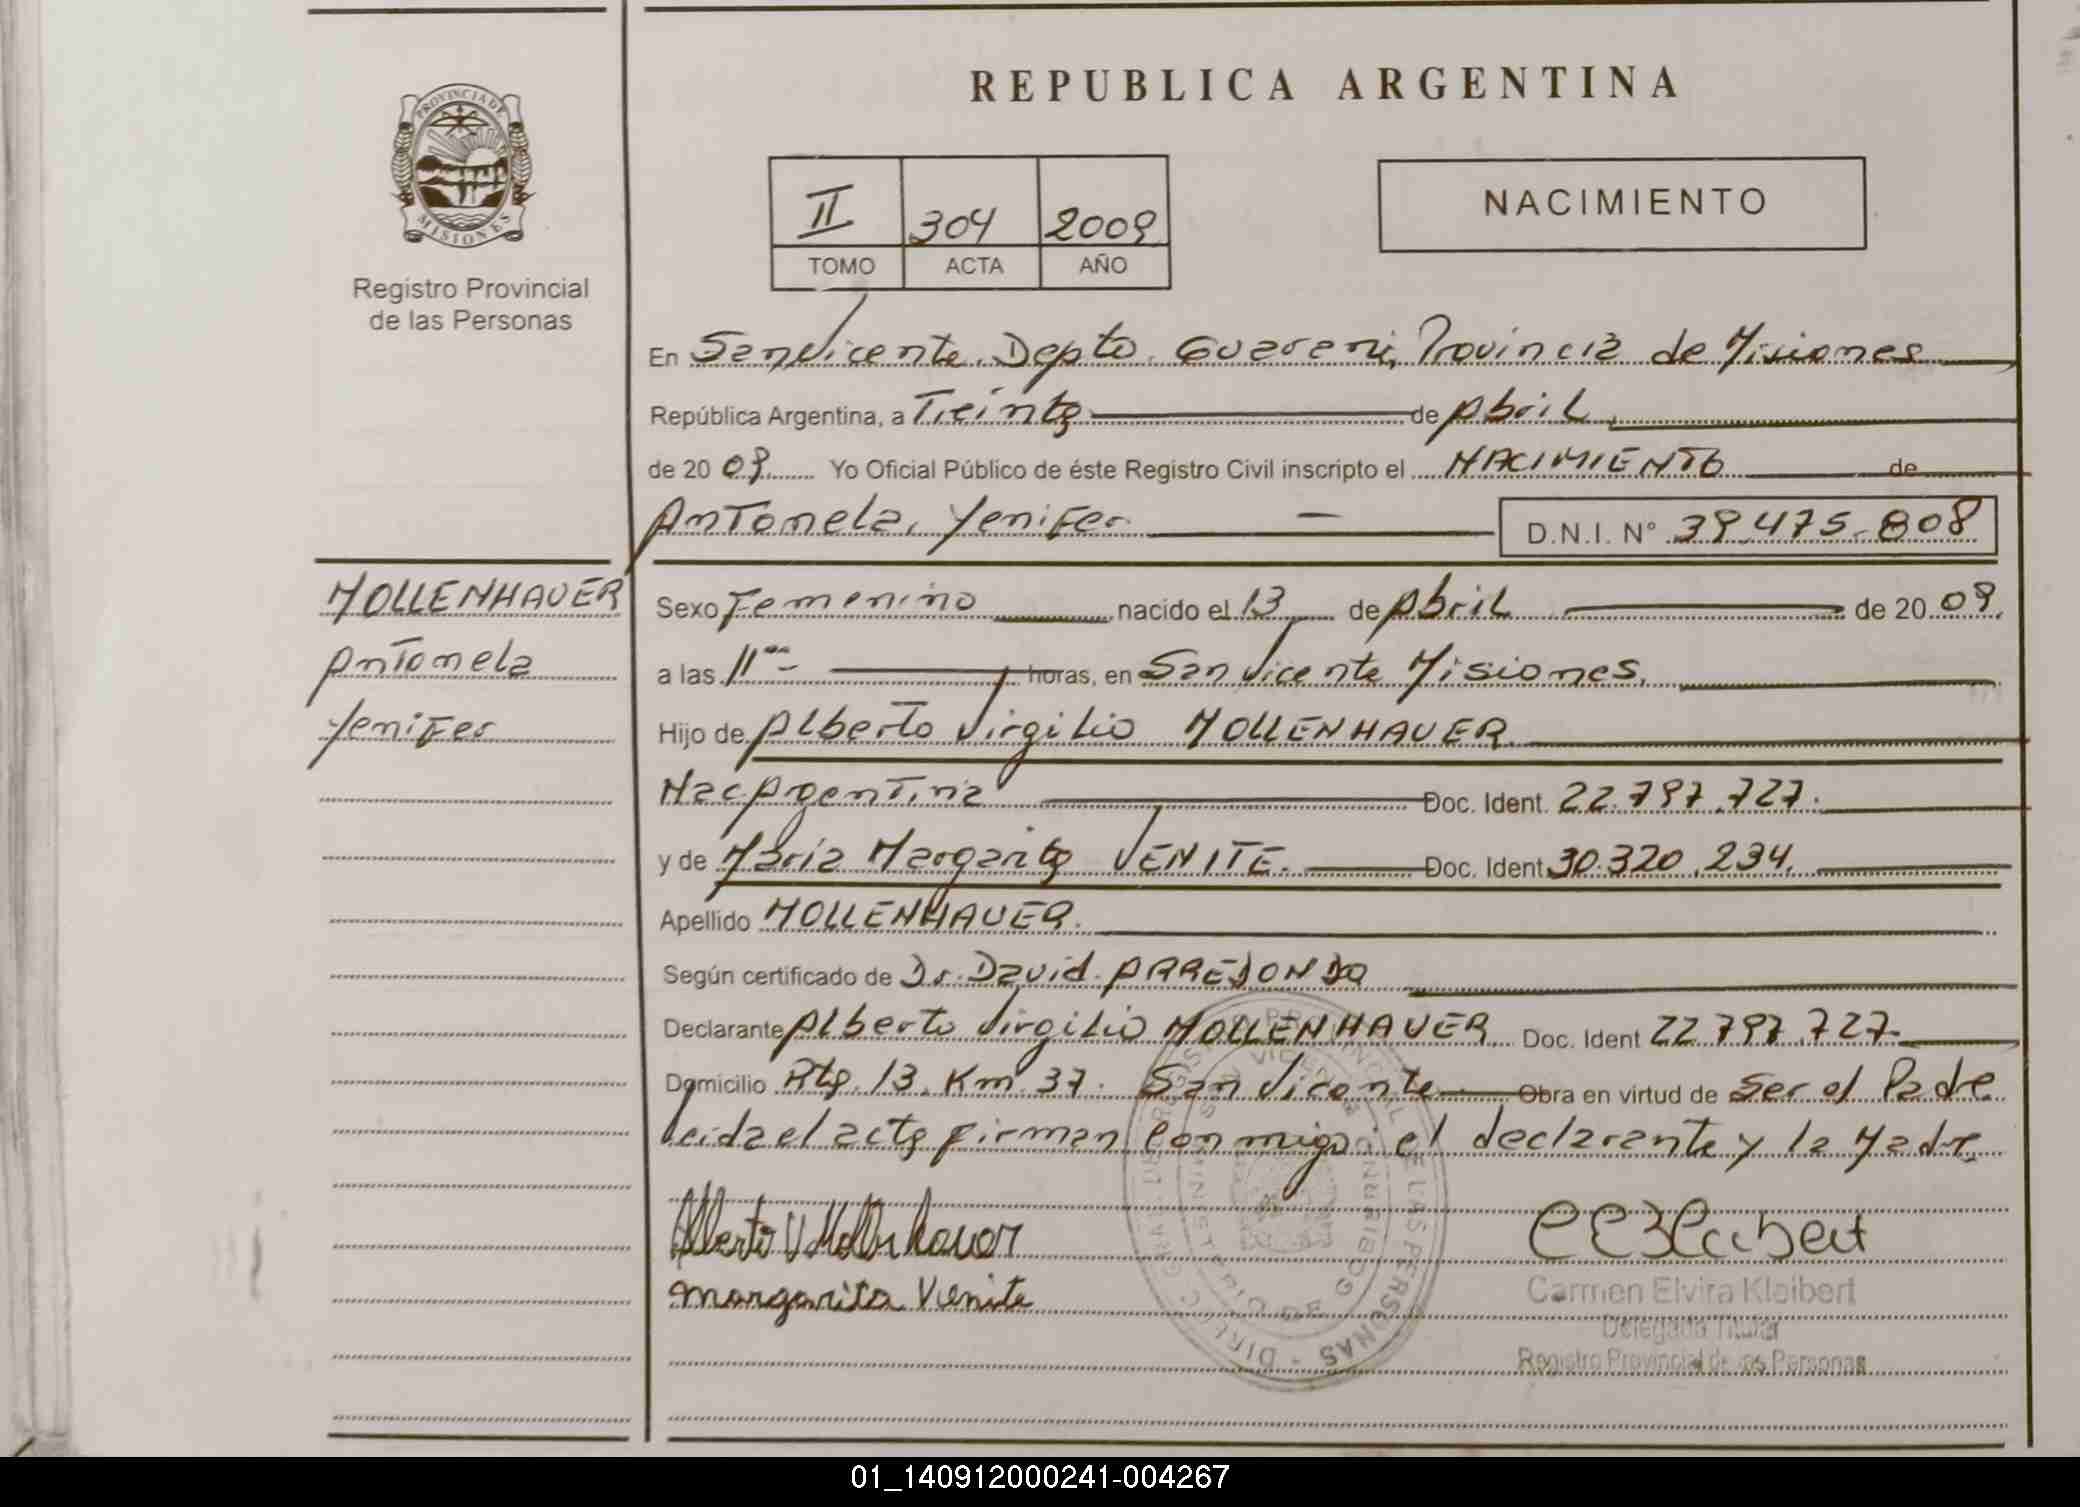 PROVINCIA DE
MISIONES
Registro Provincial
de las Personas
MOLLENHAUER
Antonela
Yenifer
REPUBLICA ARGENTINA
II 304 2009
TOMO ACTA AÑO
NACIMIENTO
En San Vicente. Depto. Guarani, Provincia de Misiones
República Argentina, a Treinta de Abril
de 20 09 Yo Oficial Público de éste Registro Civil inscripto el NACIMIENTO de
Antonela, Yenifer. D.N.I. N° 39.475.808
Sexo Femenino nacido el 13 de Abril de 20 09
a las 11 horas, en San Vicente Misiones.
Hijo de Alberto Virgilio MOLLENHAUER
Nac Argentina Doc. Ident. 22.797.727.
y de María Margarita VENITE. Doc. Ident 30.320.234.
Apellido MOLLENHAUER.
Según certificado de Dr. David ARREDONDO
Declarante Alberto Virgilio MOLLENHAUER Doc. Ident 22.797.727.
Domicilio Rta. 13. Km 37. San Vicente Obra en virtud de Ser el Padre
Leida el acta firman Conmigo el declarante y la Madre.
Alberto V Mollenhauer
Margarita Venite
Carmen Elvira Kleibert
Delegada Titular
Registro Provincial de las Personas
01_140912000241-004267